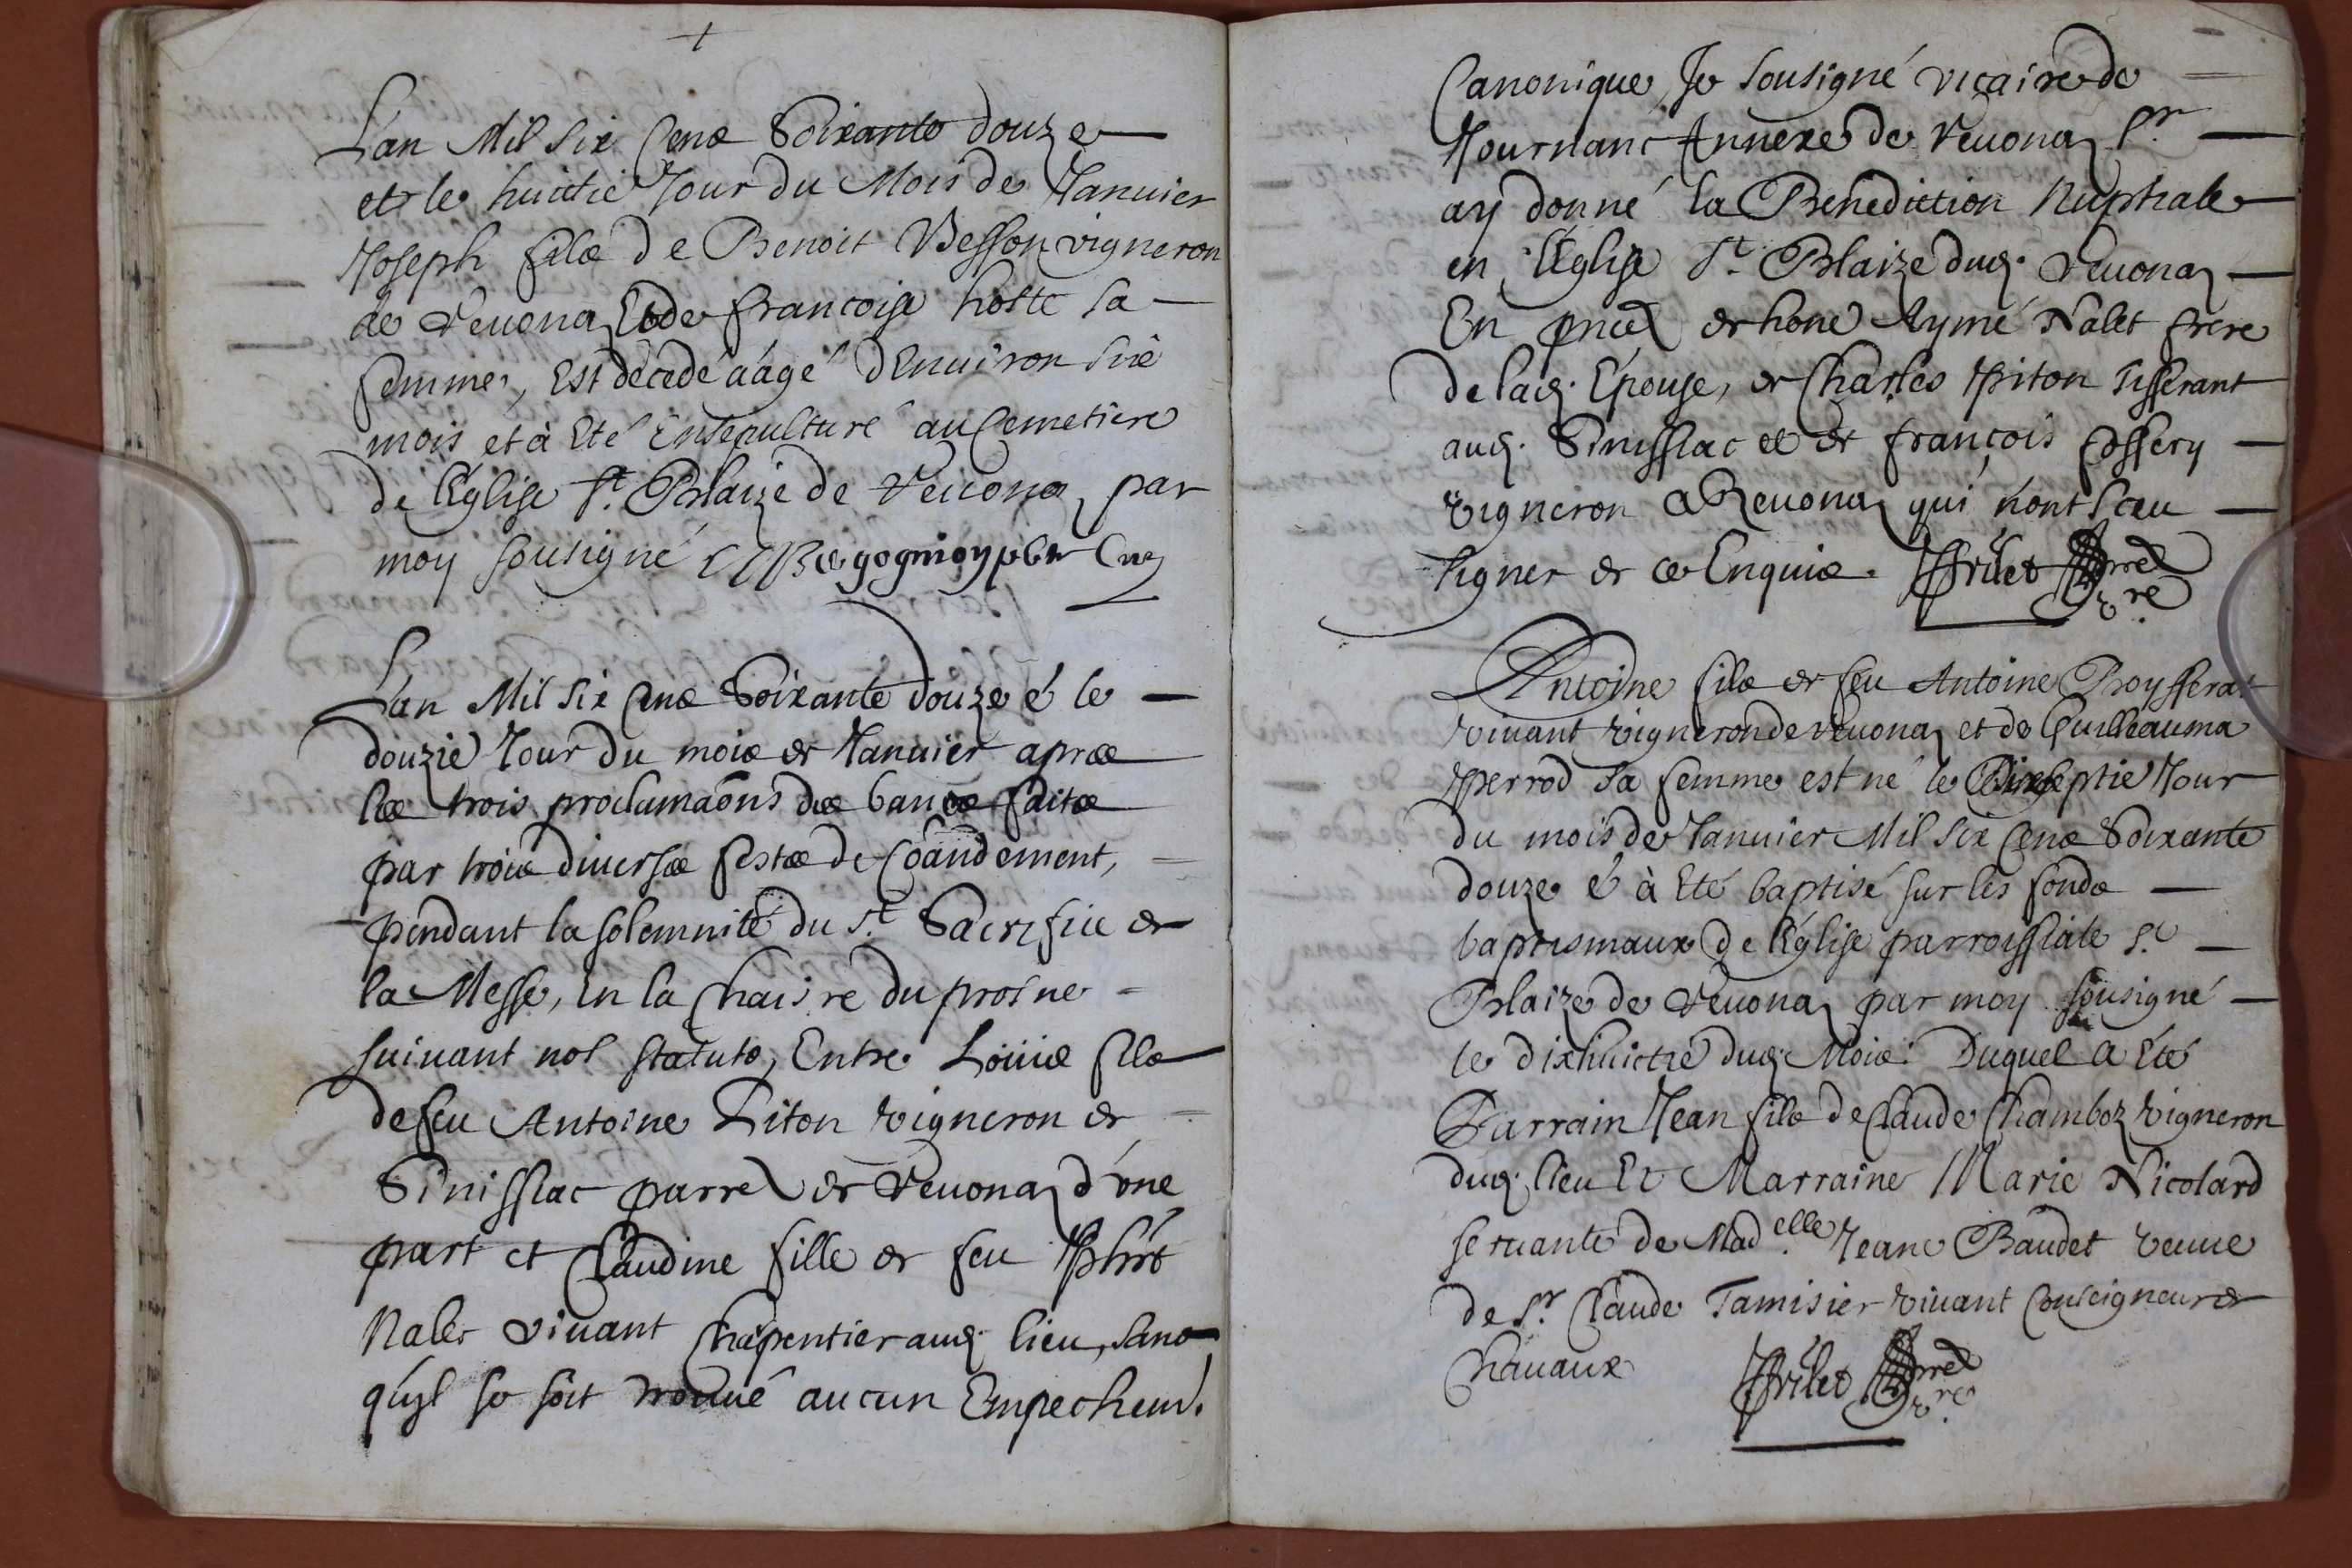 L'an Mil six Cens Soixante douze
et le huictie Jour du Mois de Januier
Joseph fils de Benoit Besson vigneron
de Veuonaz Et de francoise hoste sa
femme, Est décédé áágé d'Enuiron six
mois et à Eté Ensepulturé au Cemetiere
de l'Eglise St. Blaize de Veuona par
moy sousigné gognioy pbr Cur
L'an Mil six Cens Soixante douze é le
douzie Jour du mois de Januier apres
les trois proclamaõns des bancs faites
par trois diuerses festes de Coãndement,
pendant la solemnité du St. Sacrifice de
la Messe, En la Chaisre du prosne
suiuant nos statuts, Entre Loüis fils
de feu Antoine Piton vigneron de
Sinissiac parre de Veuonaz d'vne
part et Claudine fille de feu Phirt
Nalet viuant Chapentier aud. lieu, sans
qu'yl se soit trouué aucun Empechemt.
Canonique, Je sousigné vicaire de
Journans Annexe de Veuonaz Sr.
ay donné la Benediction Nuptiale
en l'Eglise St. Blaize dud. Veuonaz
En pnce de hone Aymé Nalet frere
de lad. Epouse, de Charles Piton Tisserant
aud. Sinissiac et de françois Cossery
vigneron à Veuonaz qui n'ont sceu
signer de ce Enquis. Frilet
Antoine fils de feu Antoine Broysserat
viuant vigneron de Veuonaz et de Guilleauma
Perrod sa femme est né le Dixseptie Jour
du mois de Januier Mil six Cens Soixante
douze é à Eté baptisé sur les fonds
baptismaux de l'Eglise parroissiale St.
Blaize de Veuonaz par moy sousigné
le dixhuictie dud. Mois. Duquel a Eté
Parrain Jean fils de Claude Chamboz vigneron
dud. lieu Et Marraine Marie Nicolard
seruante de Mad.elle Jeane Baudet veuue
de Sr. Claude Tamisier viuant Conseigneur de
Chauaux Frilet